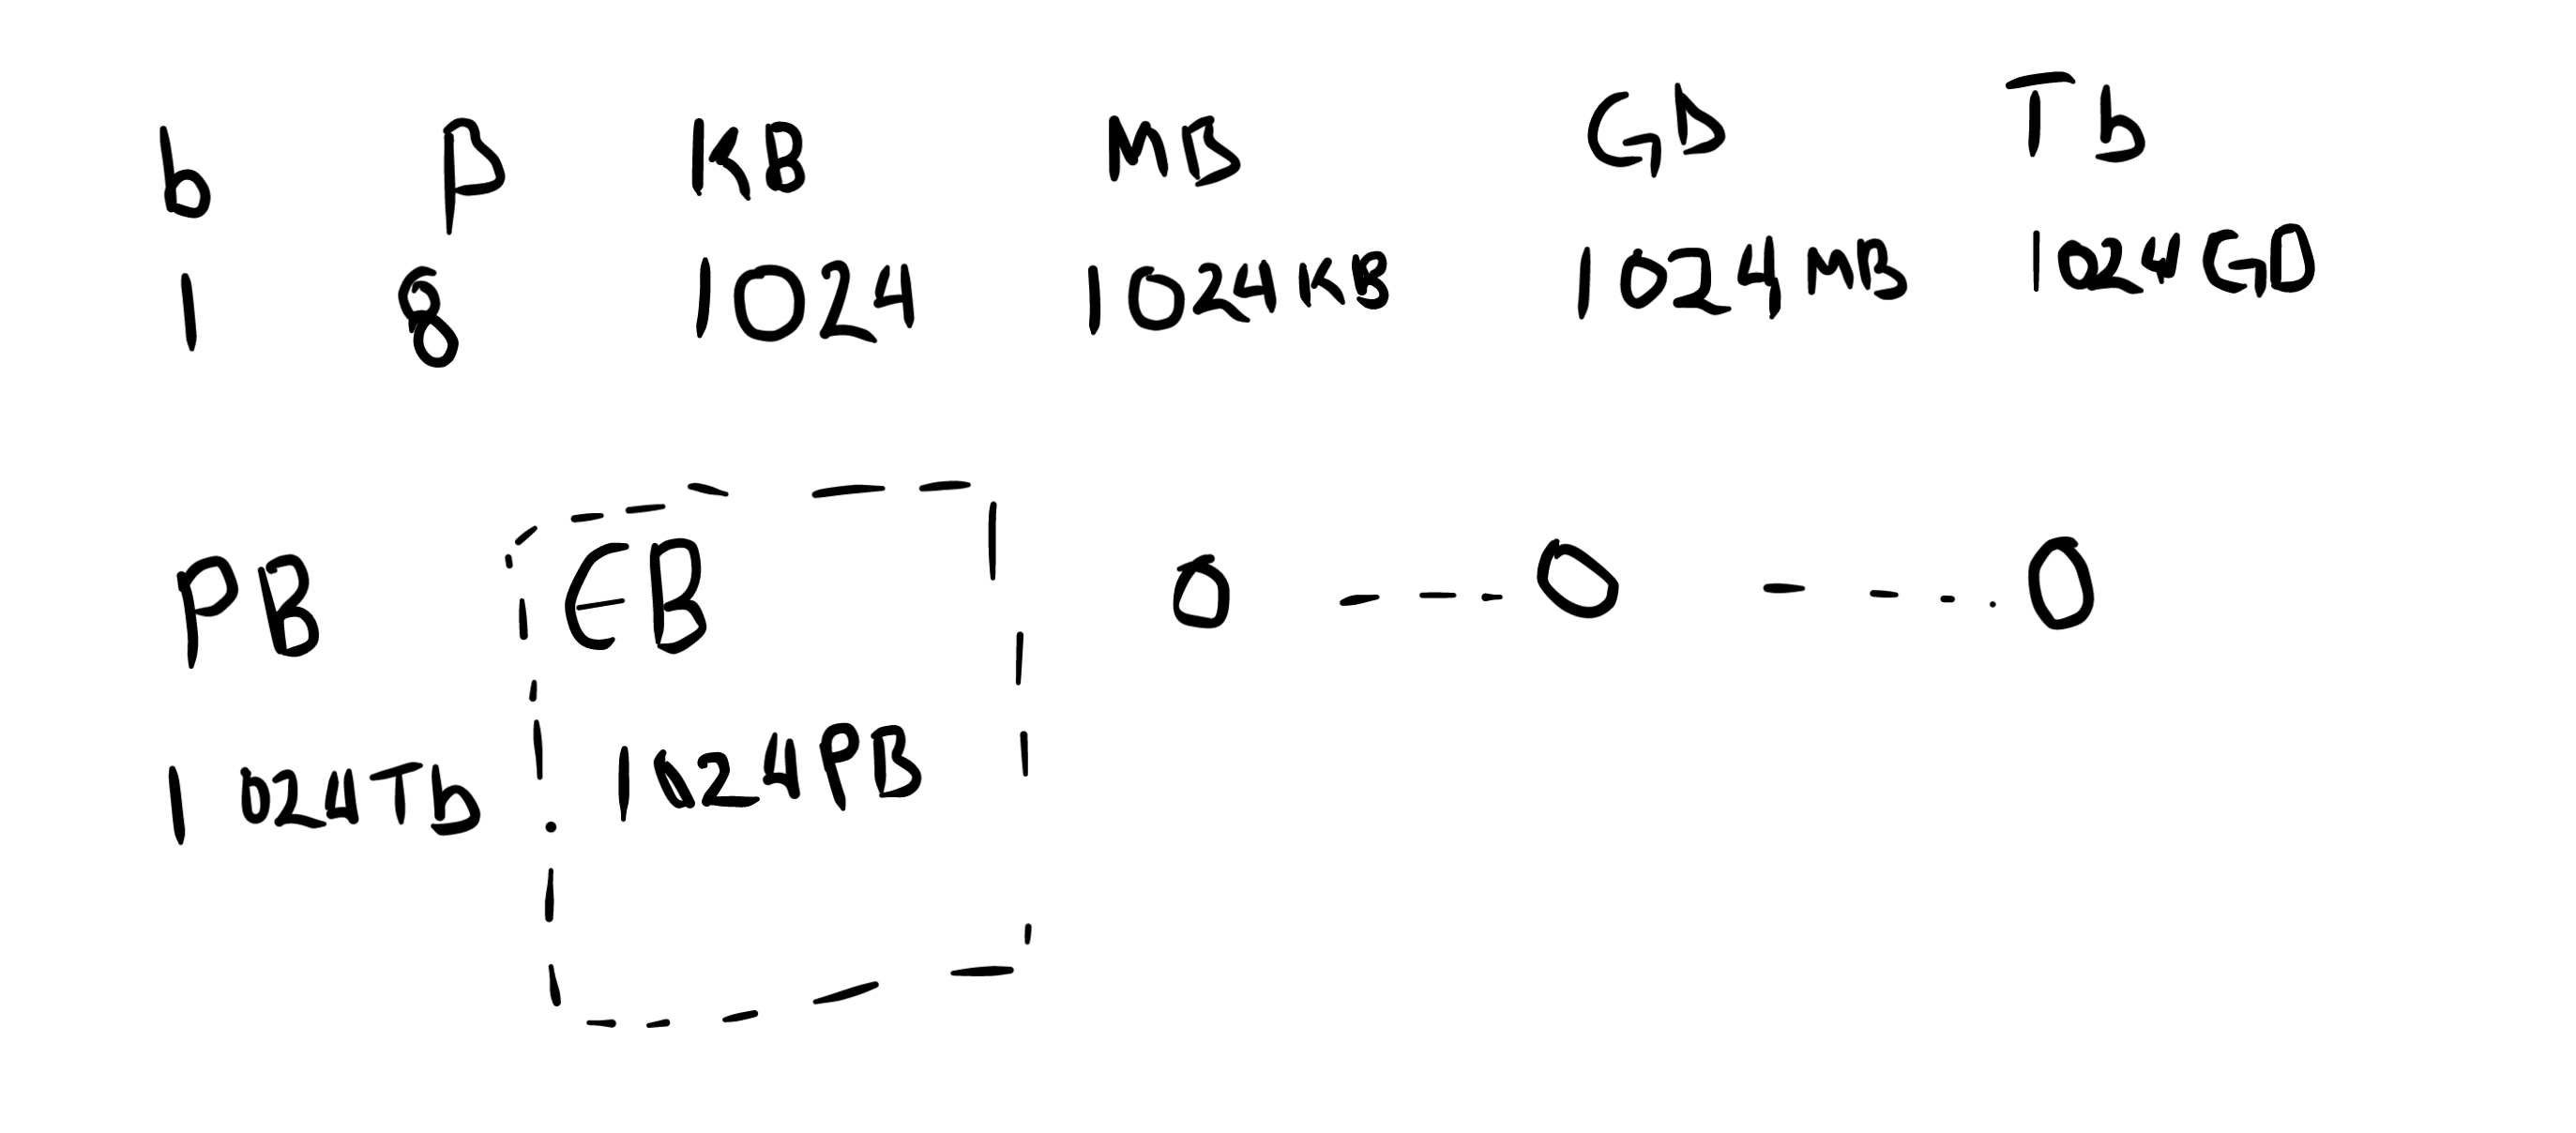 b B KB MB GD Tb
1 8 1024 1024KB 1024MB 1024GD
PB EB 0 --- 0 --- 0
1024Tb 1024PB